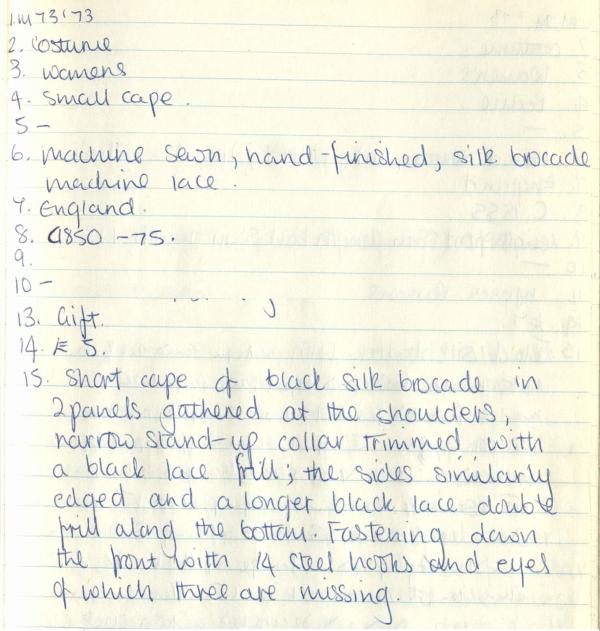 1. M73'73
2. Costume
3. womens
4. small cape.
5 -
6. machine sewn, hand-finished, silk brocade
machine lace.
7. England.
8. C1850 - 75.
9.
10 -
13. Gift.
14. E 5.
15. Short cape of black silk brocade in
2 panels gathered at the shoulders,
narrow stand-up collar trimmed with
a black lace frill; the sides similarly
edged and a longer black lace double
frill along the bottom. Fastening down
the front with 14 steel hooks and eyes
of which three are missing.